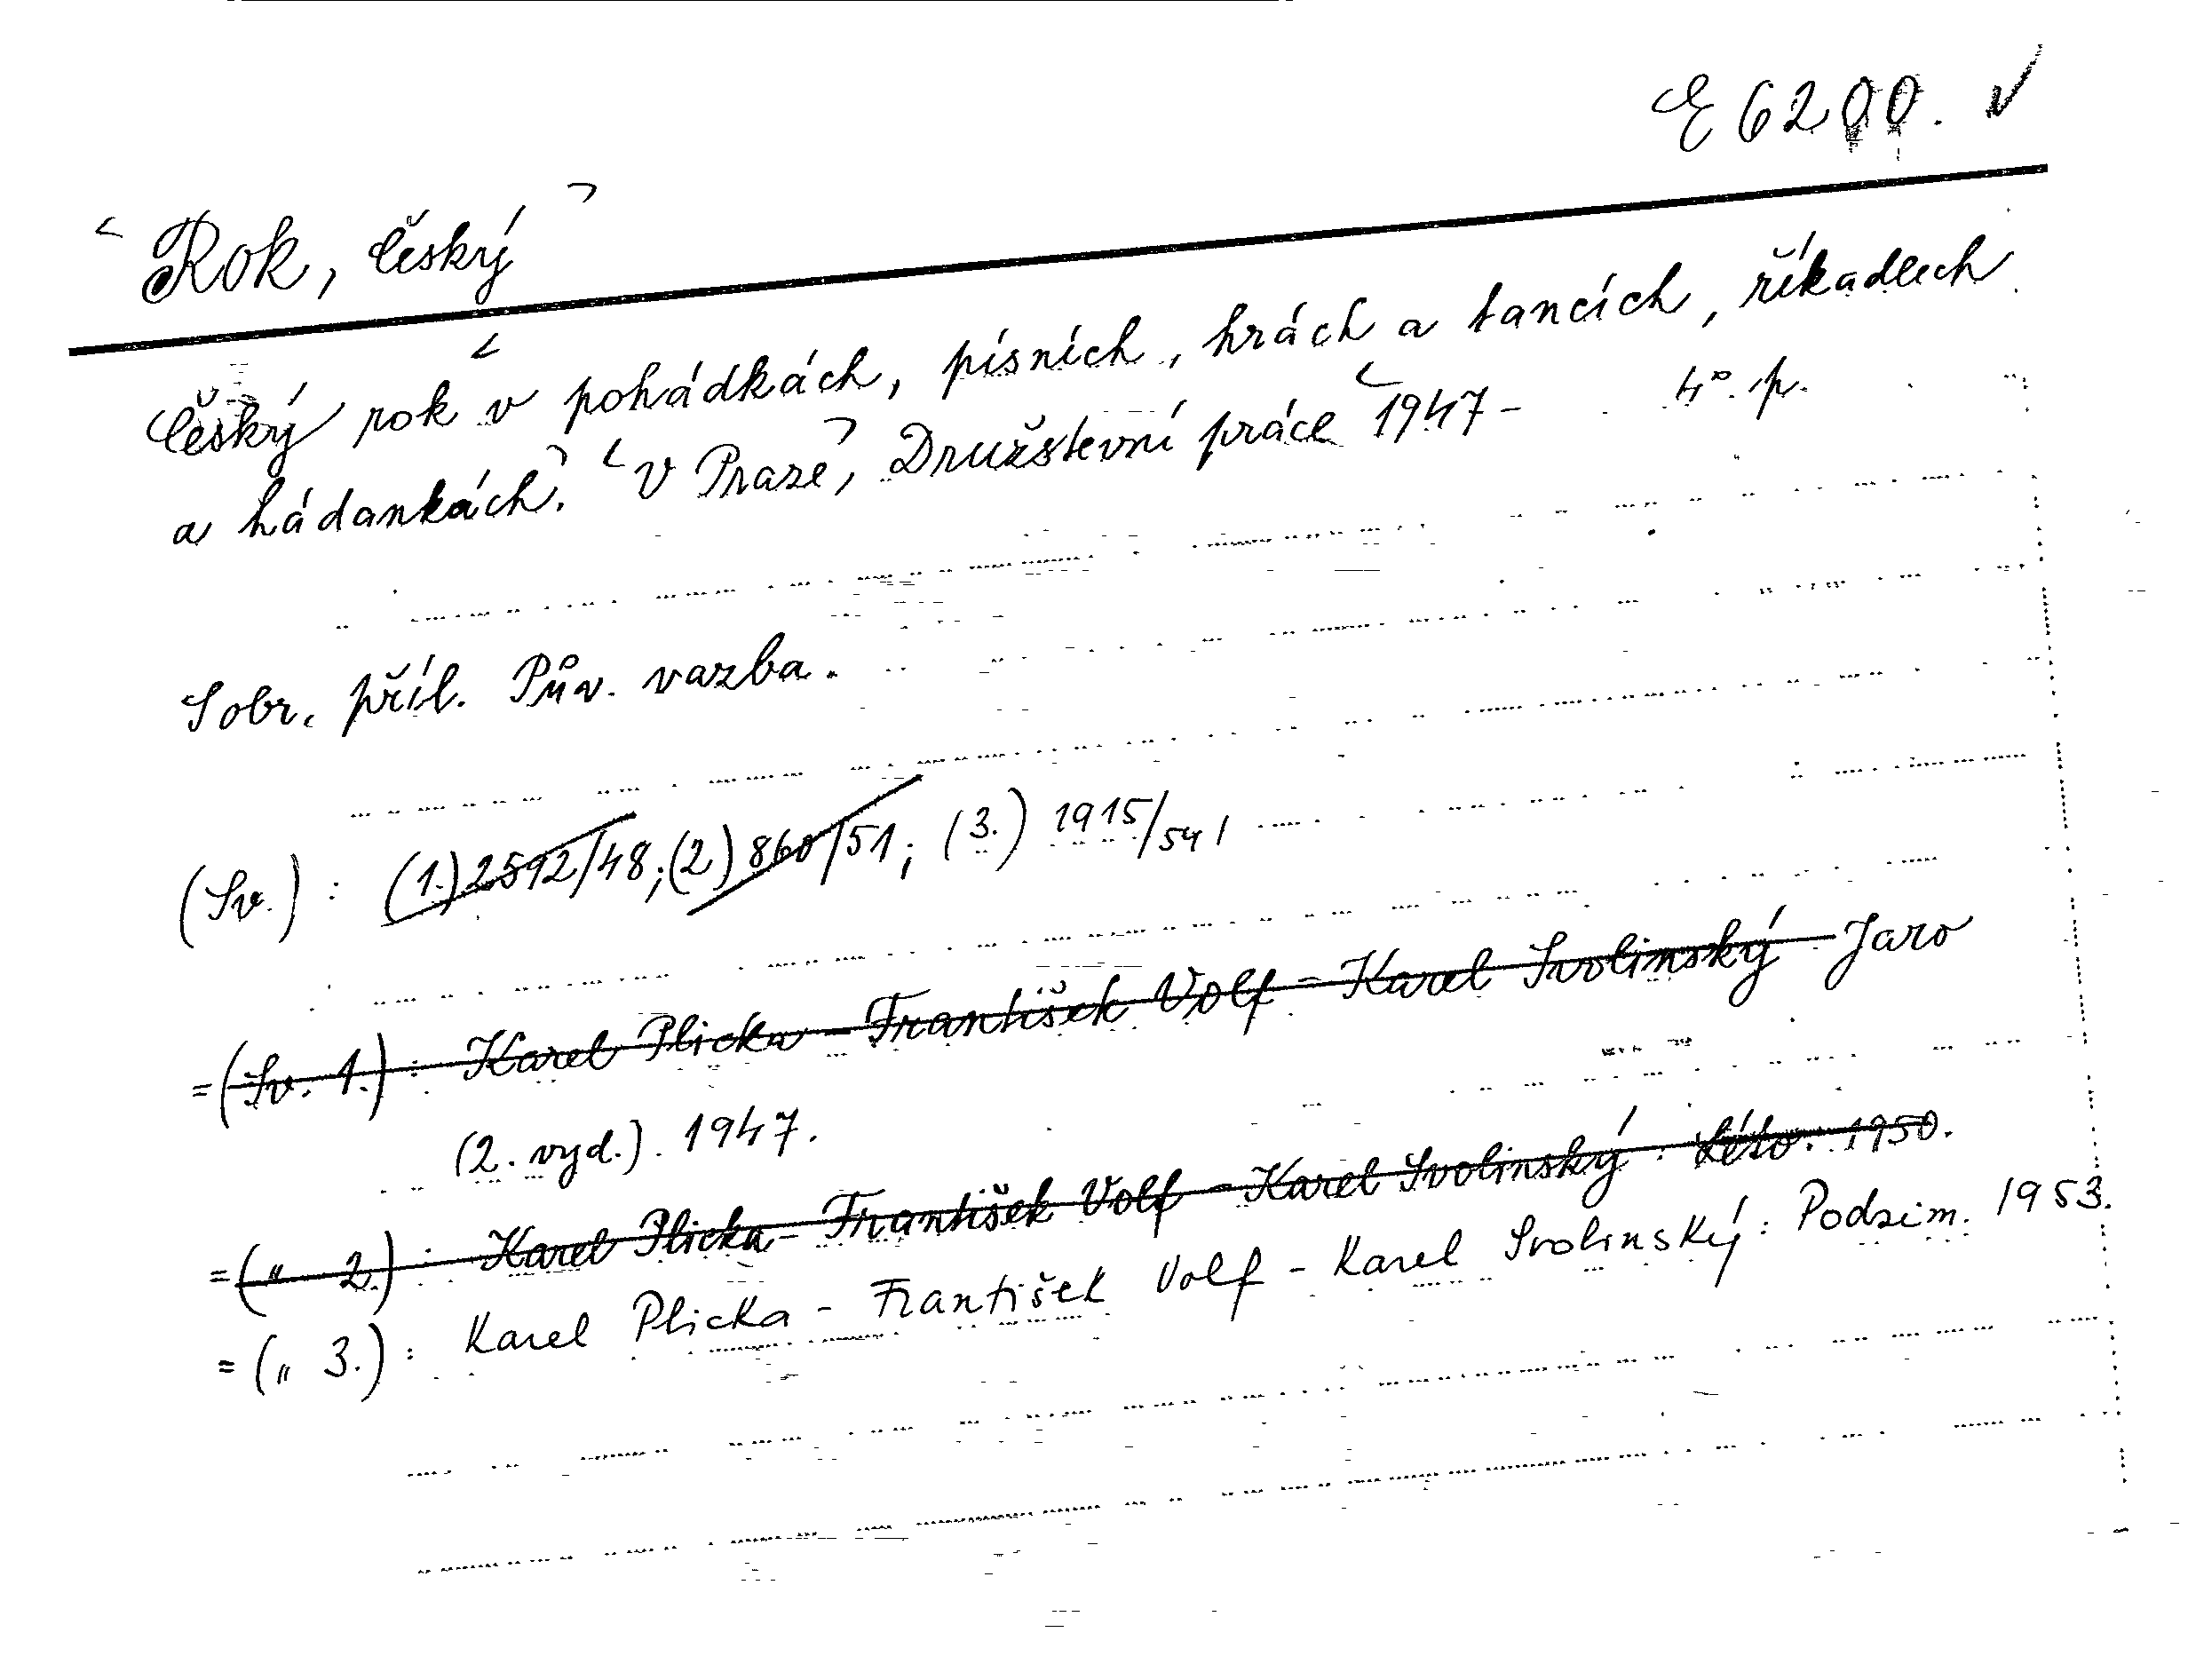 E 6200. ✓
< Rok, český >
Český rok < v pohádkách, písních, hrách a tancích, říkadlech
a hádankách. > < V Praze >, Družstevní práce < 1947 - 4°. p.
S obr. příl. Pův. vazba.
(Sv.) : (1.) 2592/48; (2) 860/51; (3.) 1915/54 /
= (Sv. 1.) : Karel Plicka - František Volf - Karel Svolinský Jaro
(2. vyd.). 1947.
= (" 2.) : Karel Plicka - František Volf - Karel Svolinský : Léto. 1950.
= (" 3.) : Karel Plicka - František Volf - Karel Svolinský : Podzim. 1953.